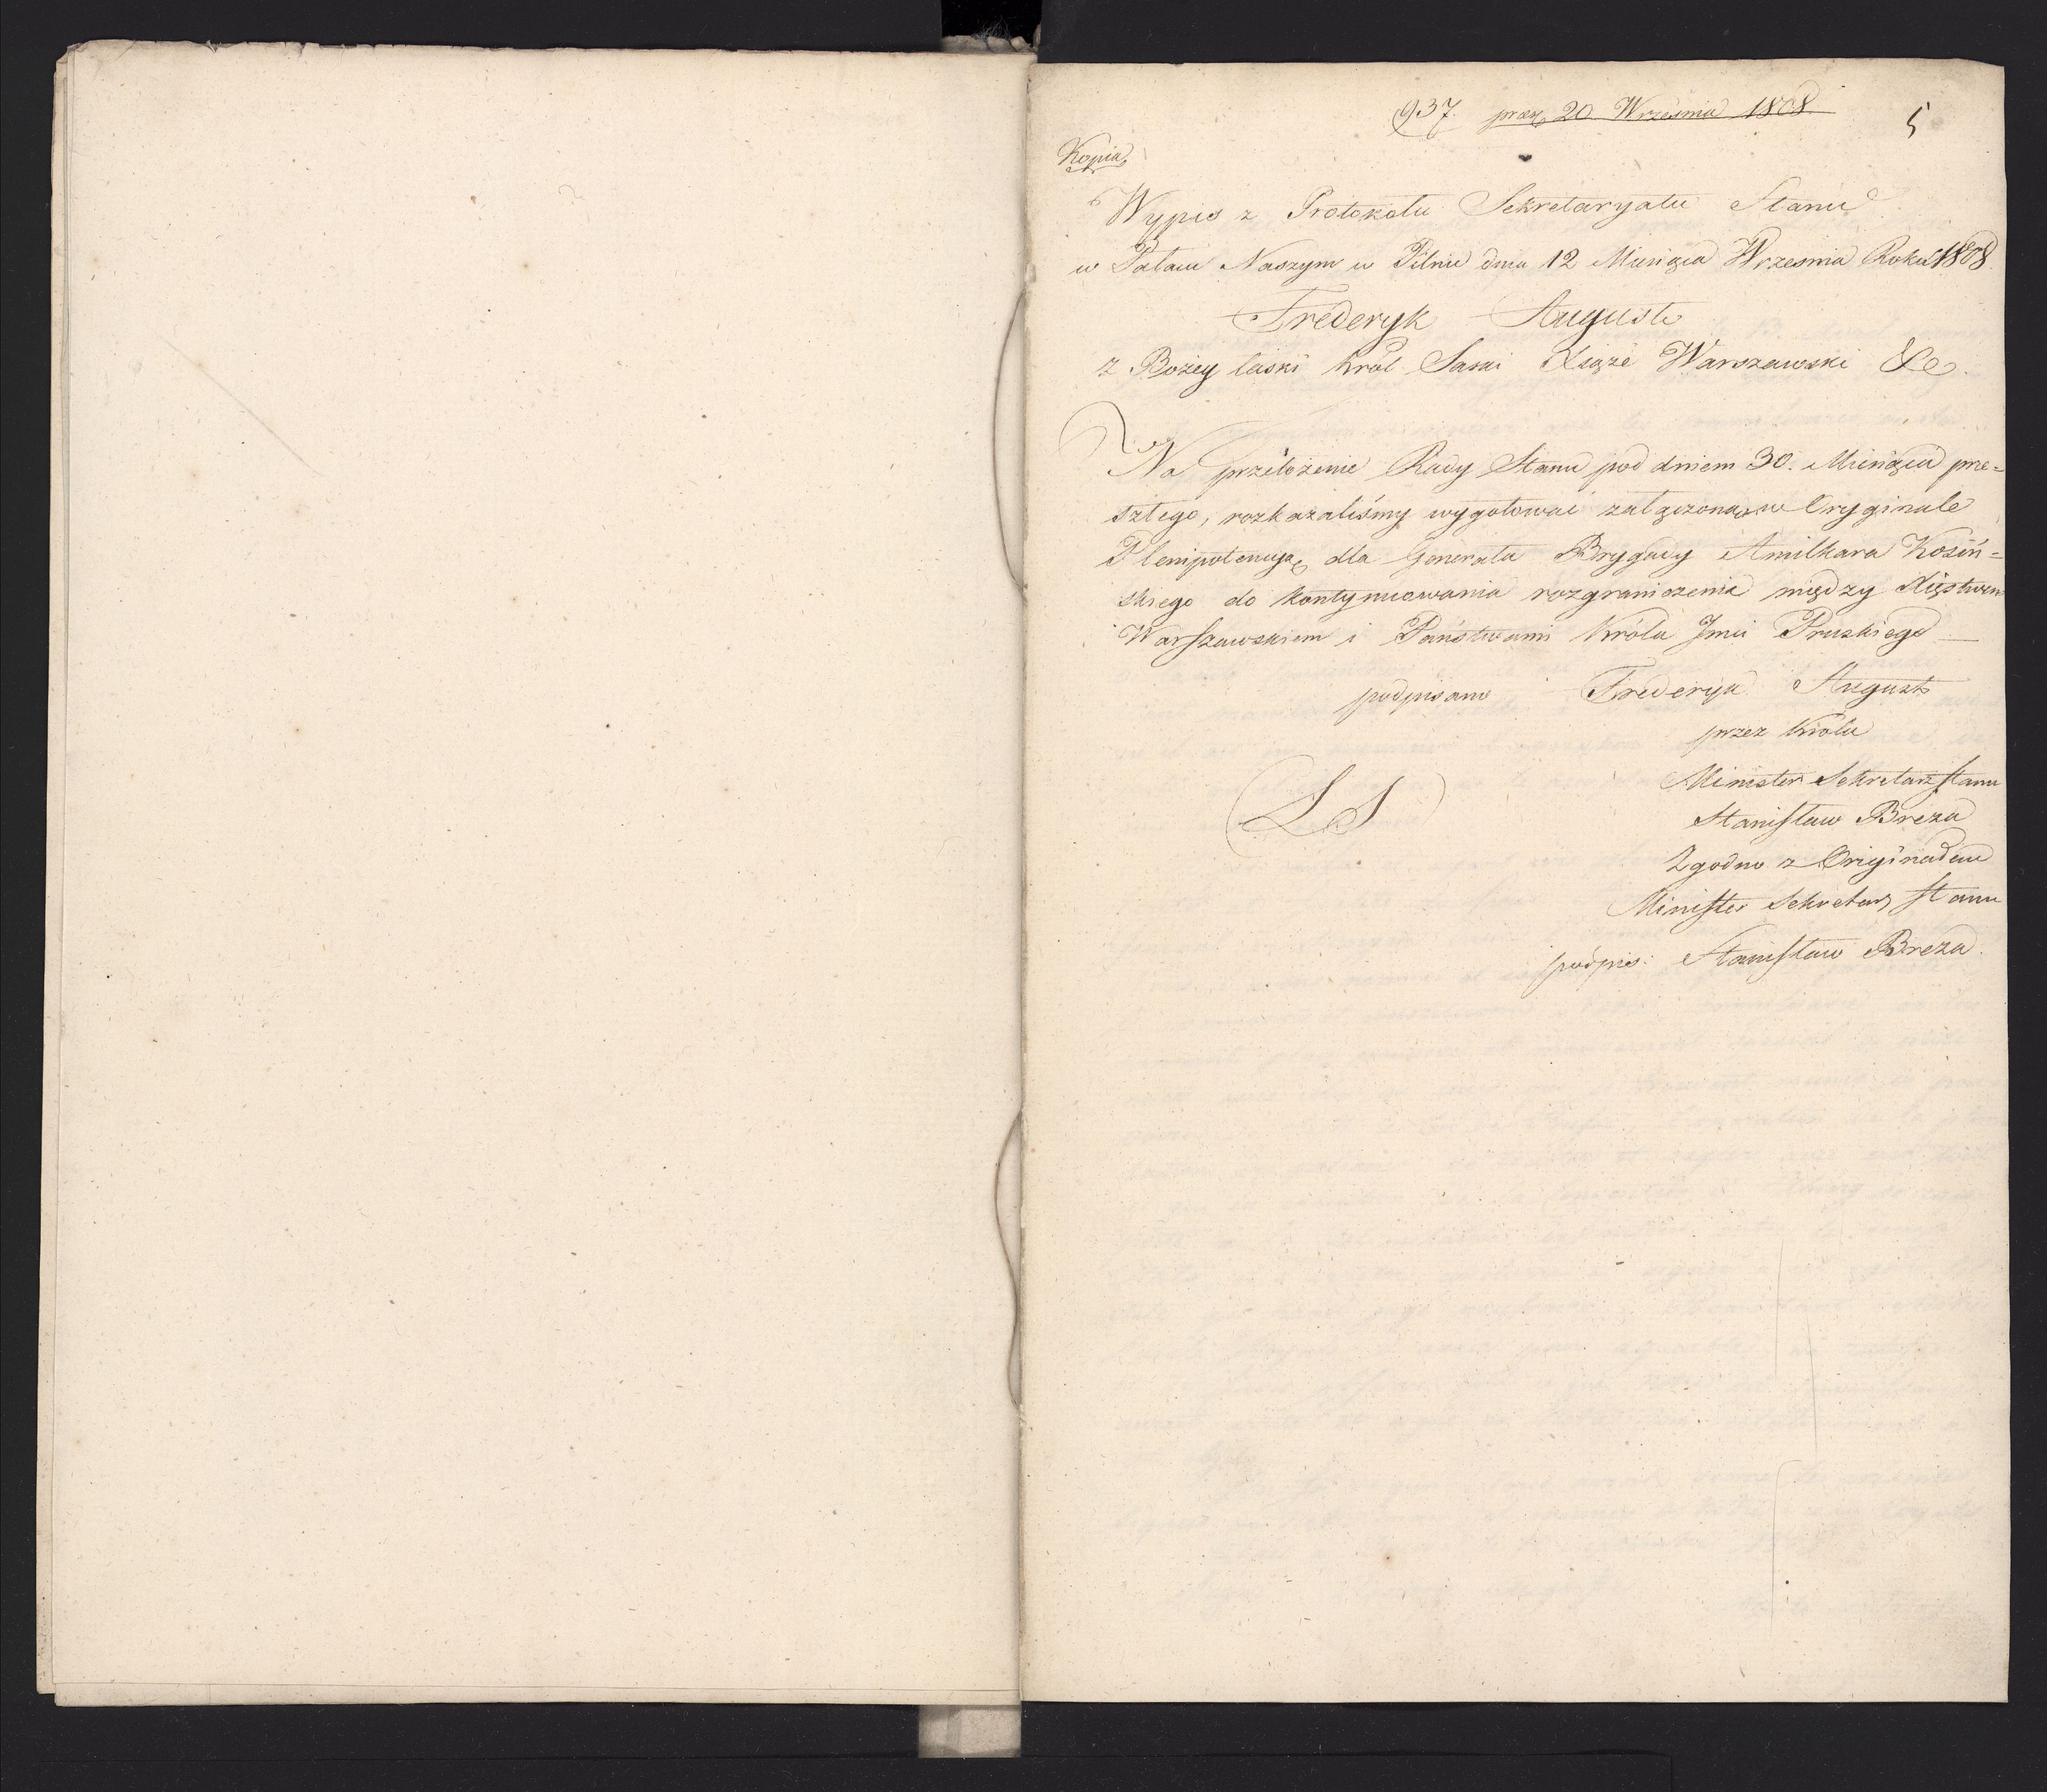 937. prez 20 Września 1808.
5
Kopia
Wypis z Protokołu Sekretaryatu Stanu
w Pałacu Naszym w Pilnic dnia 12 Miesiąca Wrzesnia Roku 1808.
Frederyk August
z Bożey łaski Król Saski Xiąże Warszawski &c.
Na przełożenie Rady Stanu pod dniem 30. Miesiąca prze=
szłego, rozkazaliśmy wygotować załączoną w Oryginale
Plenipotencyą dla Generała Brygady Amilkara Kosiń=
skiego do kontynuowania rozgraniczenia między Xięstwem
Warszawskiem i Państwami Króla Jmci Pruskiego —
podpisano Frederyk August
przez Króla
Minister Sekretarz Stanu
Stanisław Breza
Zgodno z Originałem
Minister Sekretarz Stanu
podpis: Stanisław Breza.
L S